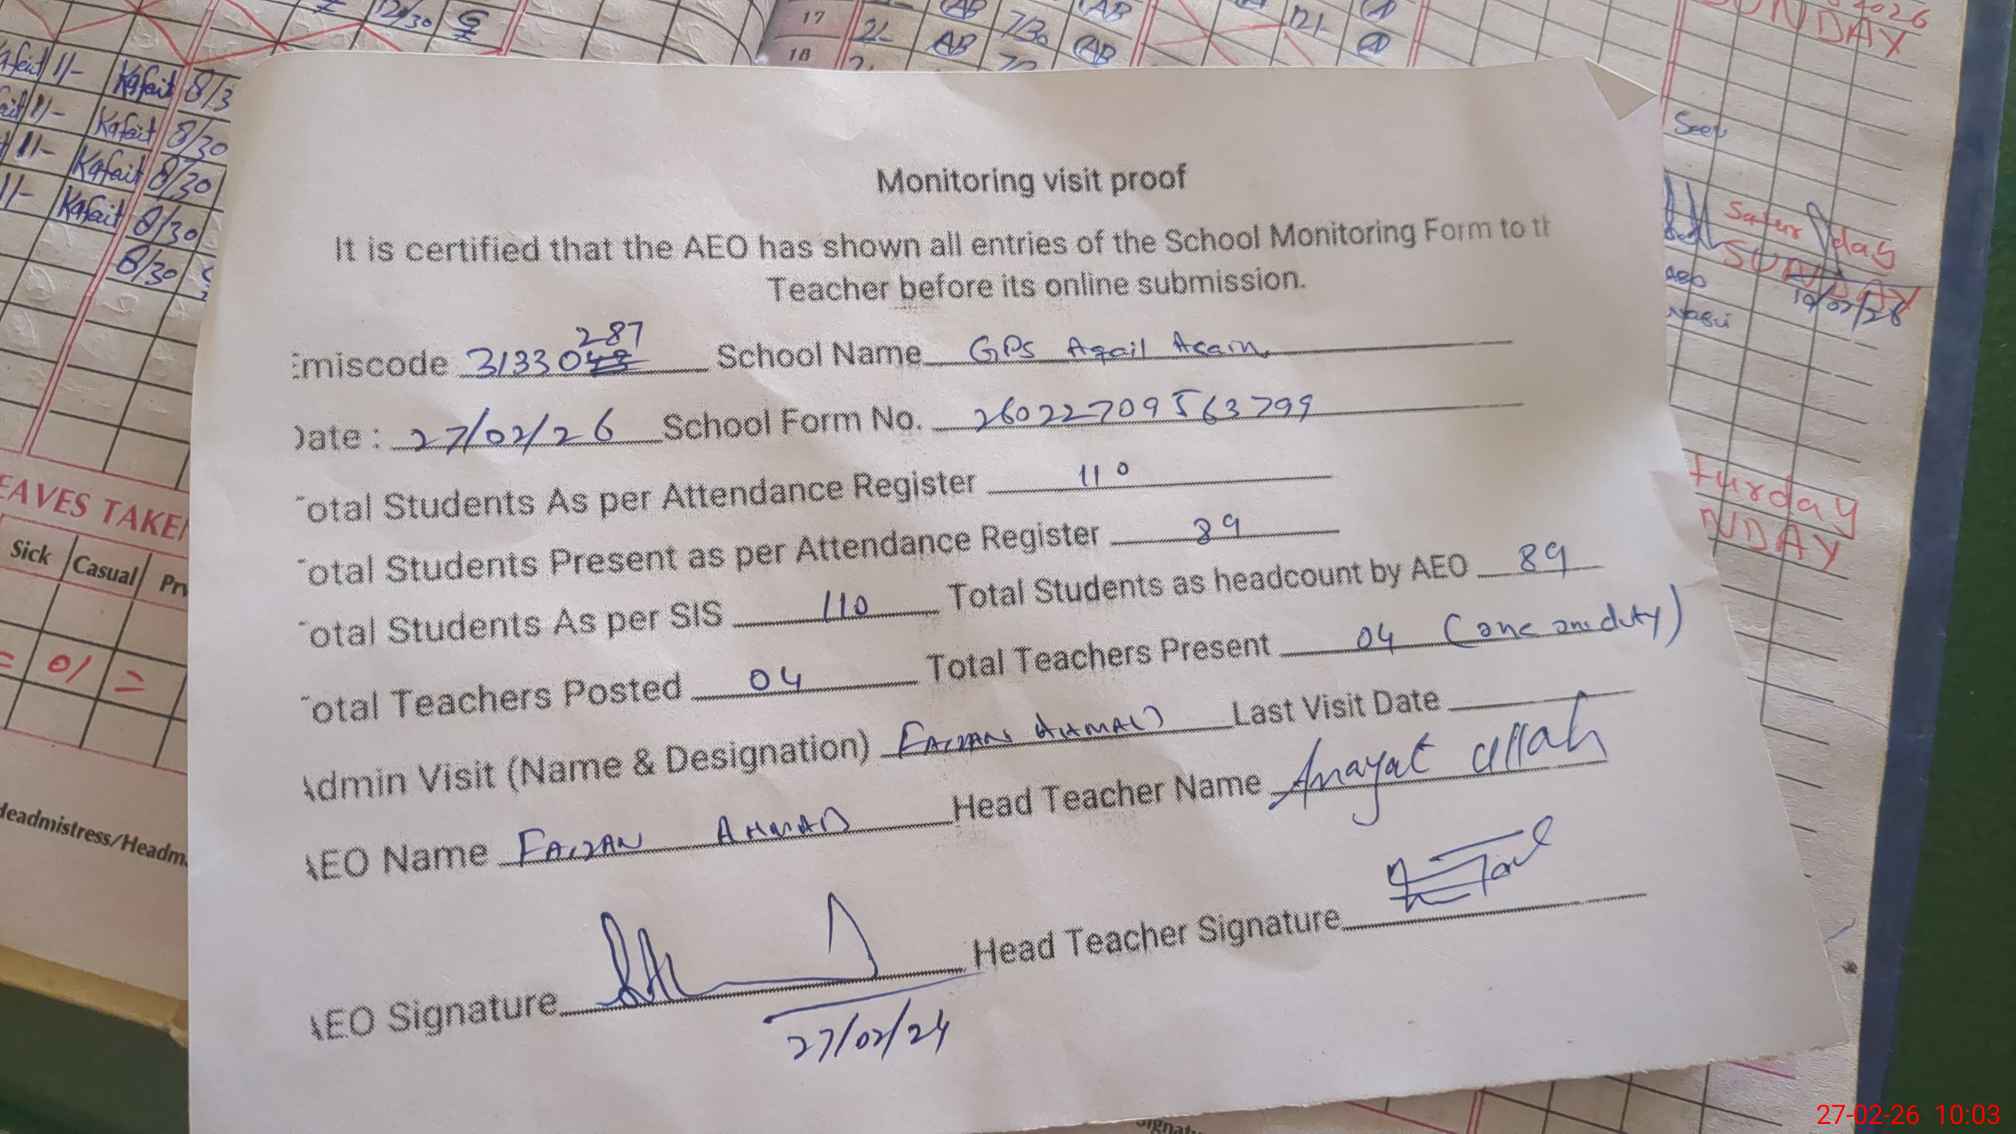 Monitoring visit proof
It is certified that the AEO has shown all entries of the School Monitoring Form to th
Teacher before its online submission.
287
Emiscode 3133043 School Name GPS Aqail Acain
Date : 27/02/26 School Form No. 26022709563799
Total Students As per Attendance Register 110
Total Students Present as per Attendance Register 89
Total Students As per SIS 110 Total Students as headcount by AEO 89
Total Teachers Posted 04 Total Teachers Present 04 (one one duty)
Admin Visit (Name & Designation) FAIZAN AHMAD Last Visit Date
AEO Name FAIZAN AHMAD Head Teacher Name Anayat Ullah
AEO Signature Head Teacher Signature
27/02/24
17
18
2/- AB 7/30 AB
Kafait 8/3
Kafait 8/30
Kafait 8/30
Kafait 8/30
8/30
LEAVES TAKE
Sick Casual Prv
= 01 =
Headmistress/Headm
SUNDAY
Seen
Saturday
SUNDAY
AEO
10/02/26
turday
NDAY
27-02-26 10:03